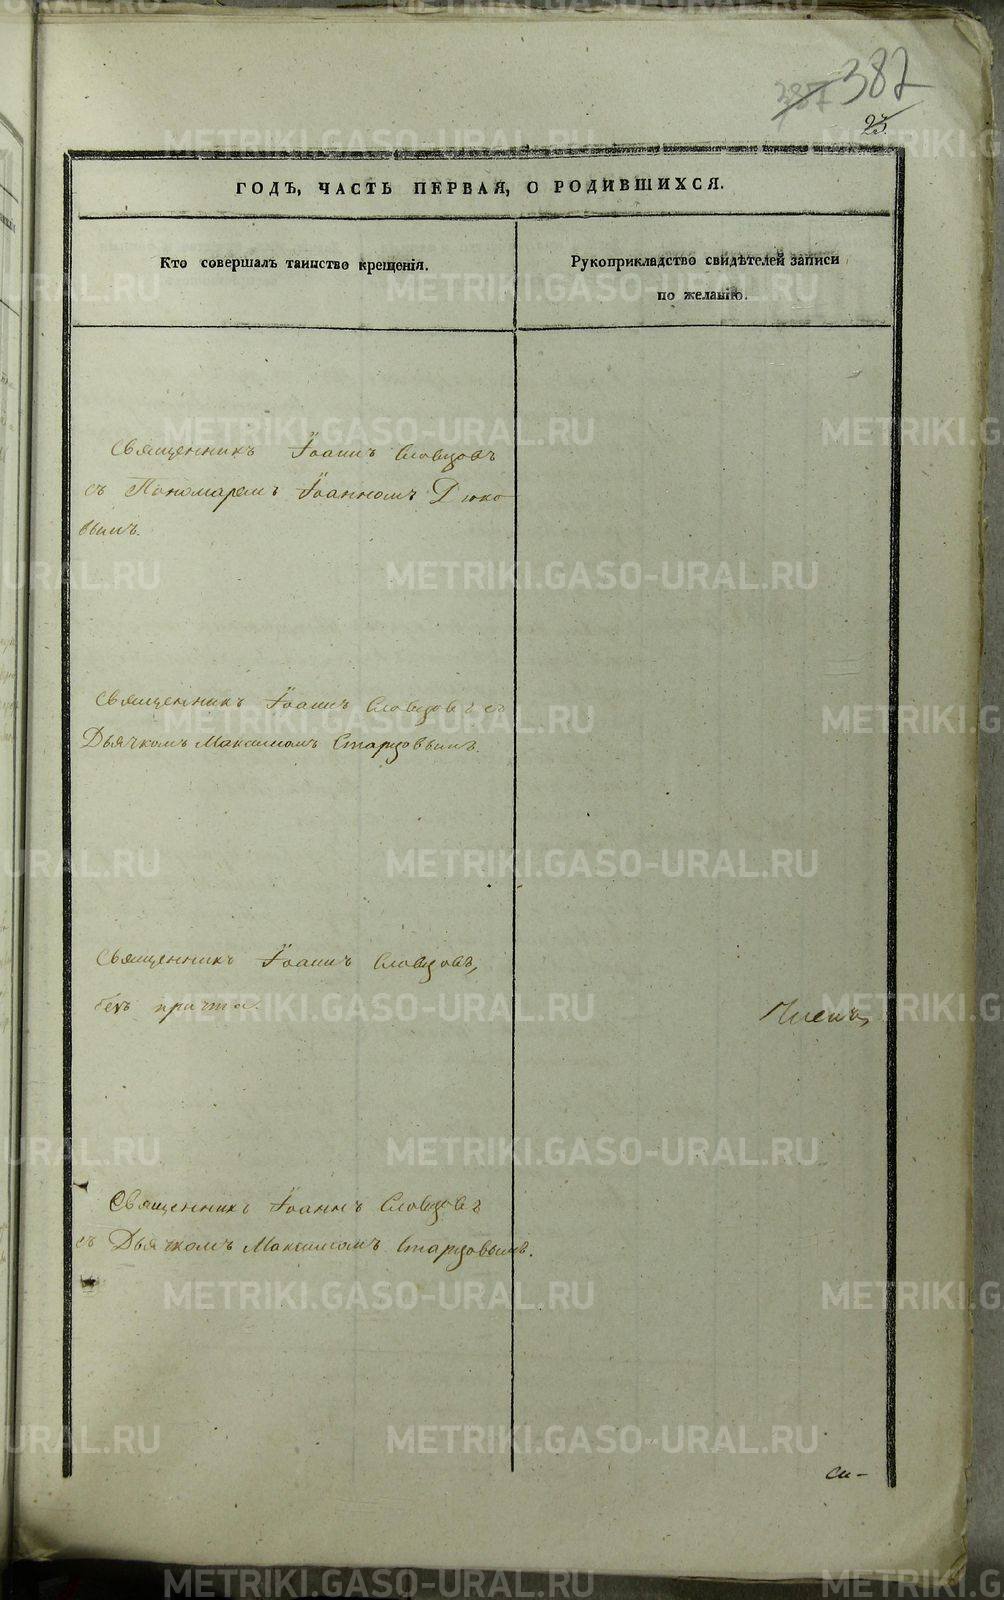 387 387
23.
ГОДЪ, ЧАСТЬ ПЕРВАЯ, О РОДИВШИХСЯ.
Кто совершалъ таинство крещенія.
Рукоприкладство свидѣтелей записи
по желанію.
Священникъ Іоаннъ Словцовъ
съ Пономаремъ Іоанномъ Дюко
вымъ.
Священникъ Іоаннъ Словцовъ съ
Дьячкомъ Максимомъ Старцовымъ.
Священникъ Іоаннъ Словцовъ,
безъ причта.
Священникъ Іоаннъ Словцовъ
съ Дьячкомъ Максимомъ Старцовымъ.
си-
METRIKI.GASO-URAL.RU